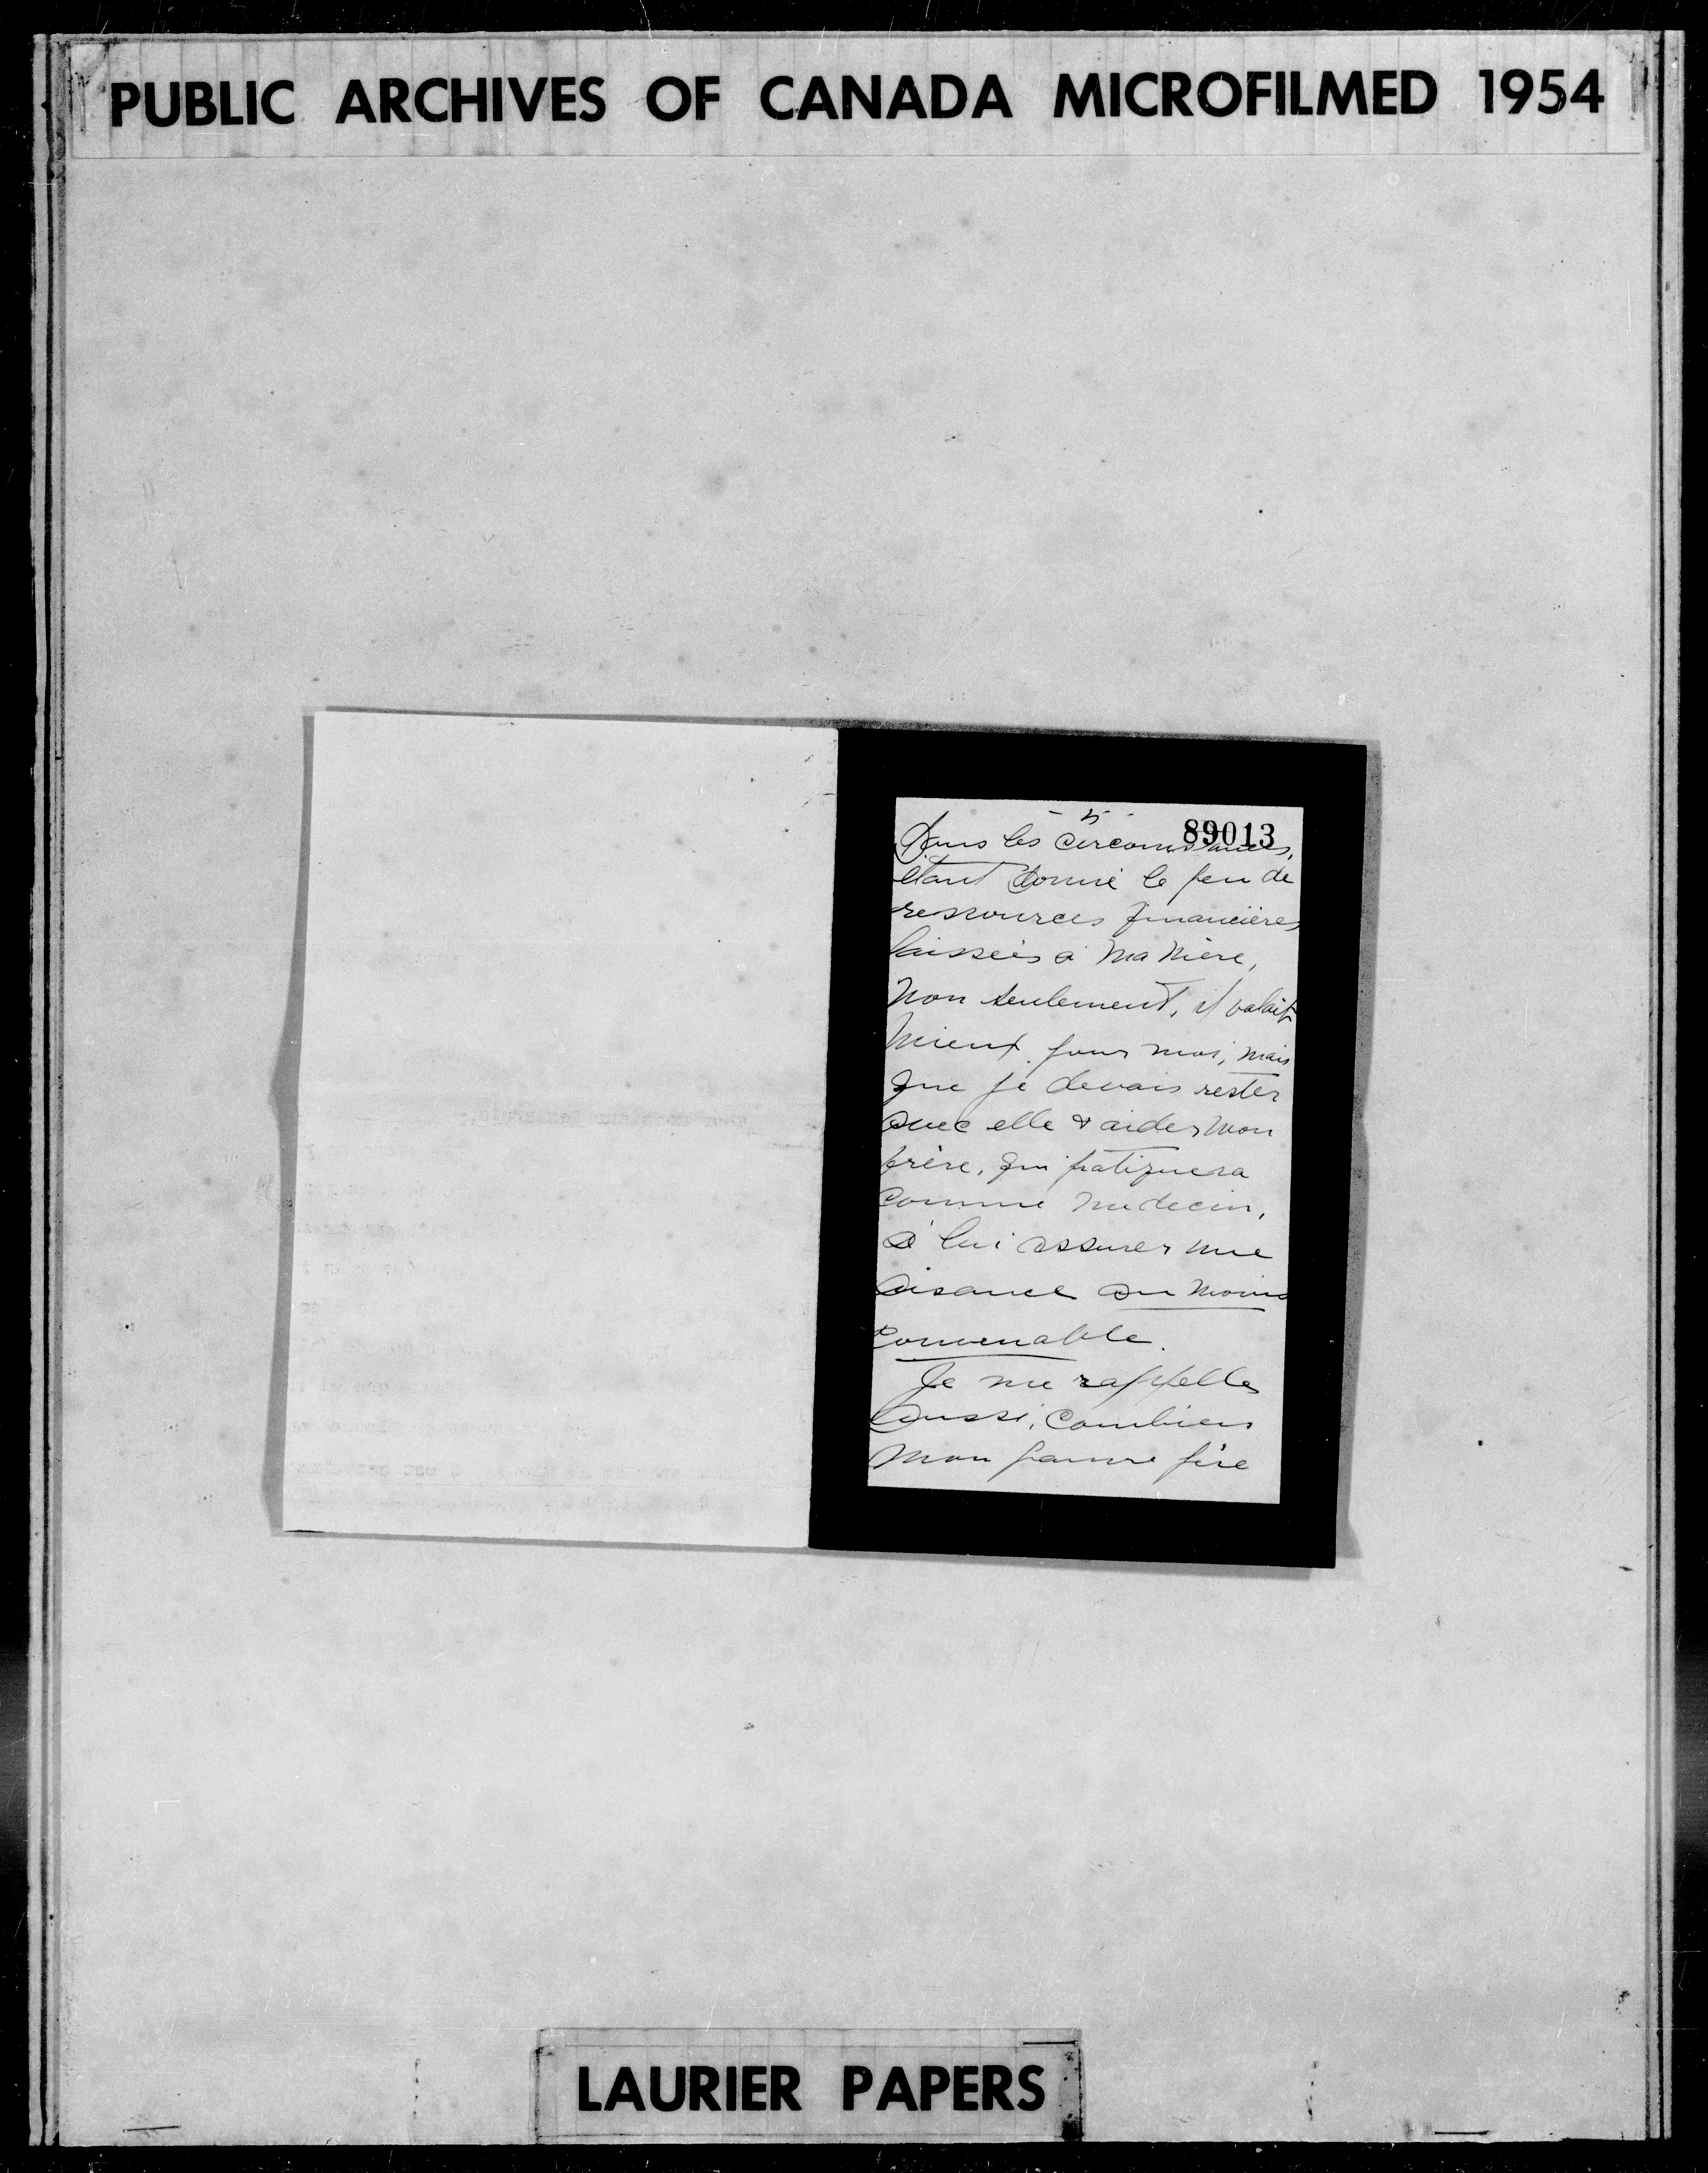 PUBLIC ARCHIVES OF CANADA MICROFILMED 1954
- 5 -
89013
Dans les circonstances,
étant donné le peu de
ressources financières
laissées à ma mère,
non seulement, il valait
mieux pour moi, mais
que je devais rester
avec elle & aider mon
frère, qui pratiquera
comme medecin,
à lui assurer une
aisance au moins
convenable.
Je me rappelle
aussi, combien
mon pauvre père
LAURIER PAPERS